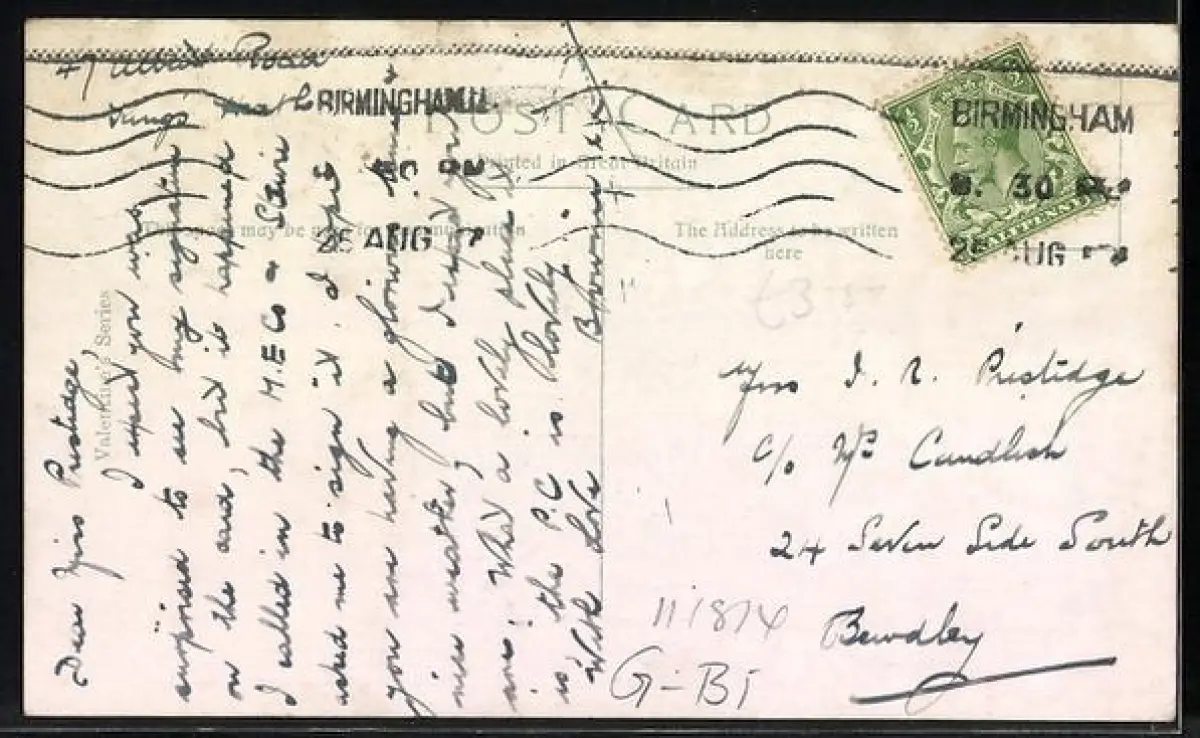 47 Road
BIRMINGHAM
30 PM
25 AUG 7
POST CARD
Printed in Great Britain
This space may be used for communication
The Address to be written
here
Valentine's Series
BIRMINGHAM
30
25 AUG
HALFPENNY
Dear Miss Prestidge,
I expect you was
surprised to see my signature
on the card, but it happened
I called in the M.E Co & Elsie
asked me to sign it. I hope
you are having a glorious time
nice weather, but
are. What a lovely place it
is the P.C is. Lovely
With Love
£3
Miss I. R. Prestidge
c/o Mrs Candlish
24 Seven Side South
Bewdley
111874
G-BI